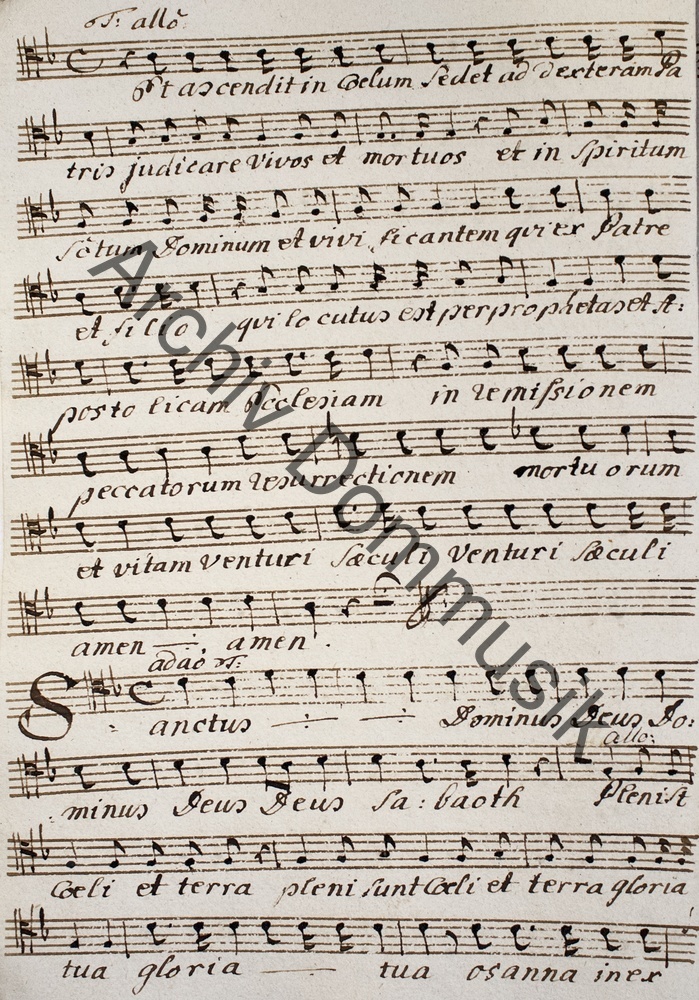 T: allo
Et ascendit in Coelum Sedet ad dexteram Pa
tris judicare vivos et mortuos et in Spiritum
Sctum Dominum et vivificantem qui ex Patre
et filio qui locutus est per prophetas et A:
postolicam Ecclesiam in remissionem
peccatorum resurrectionem mortuorum
et vitam venturi sæculi venturi sæculi
amen amen.
adao T:
Sanctus Dominus Deus Do:
allo:
minus Deus Deus Sa:baoth Pleni st
Coeli et terra pleni sunt Coeli et terra gloria
tua gloria tua osanna in ex
Archiv Dommusik